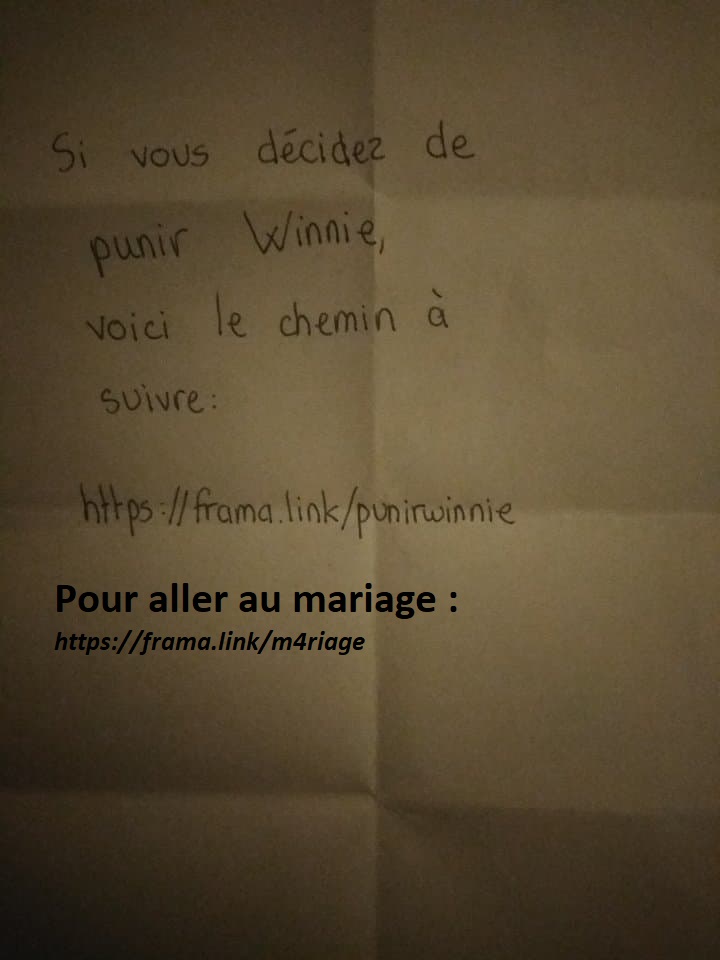 Si vous décidez de
punir Winnie,
voici le chemin à
suivre:
https://frama.link/punirwinnie
Pour aller au mariage :
https://frama.link/m4riage